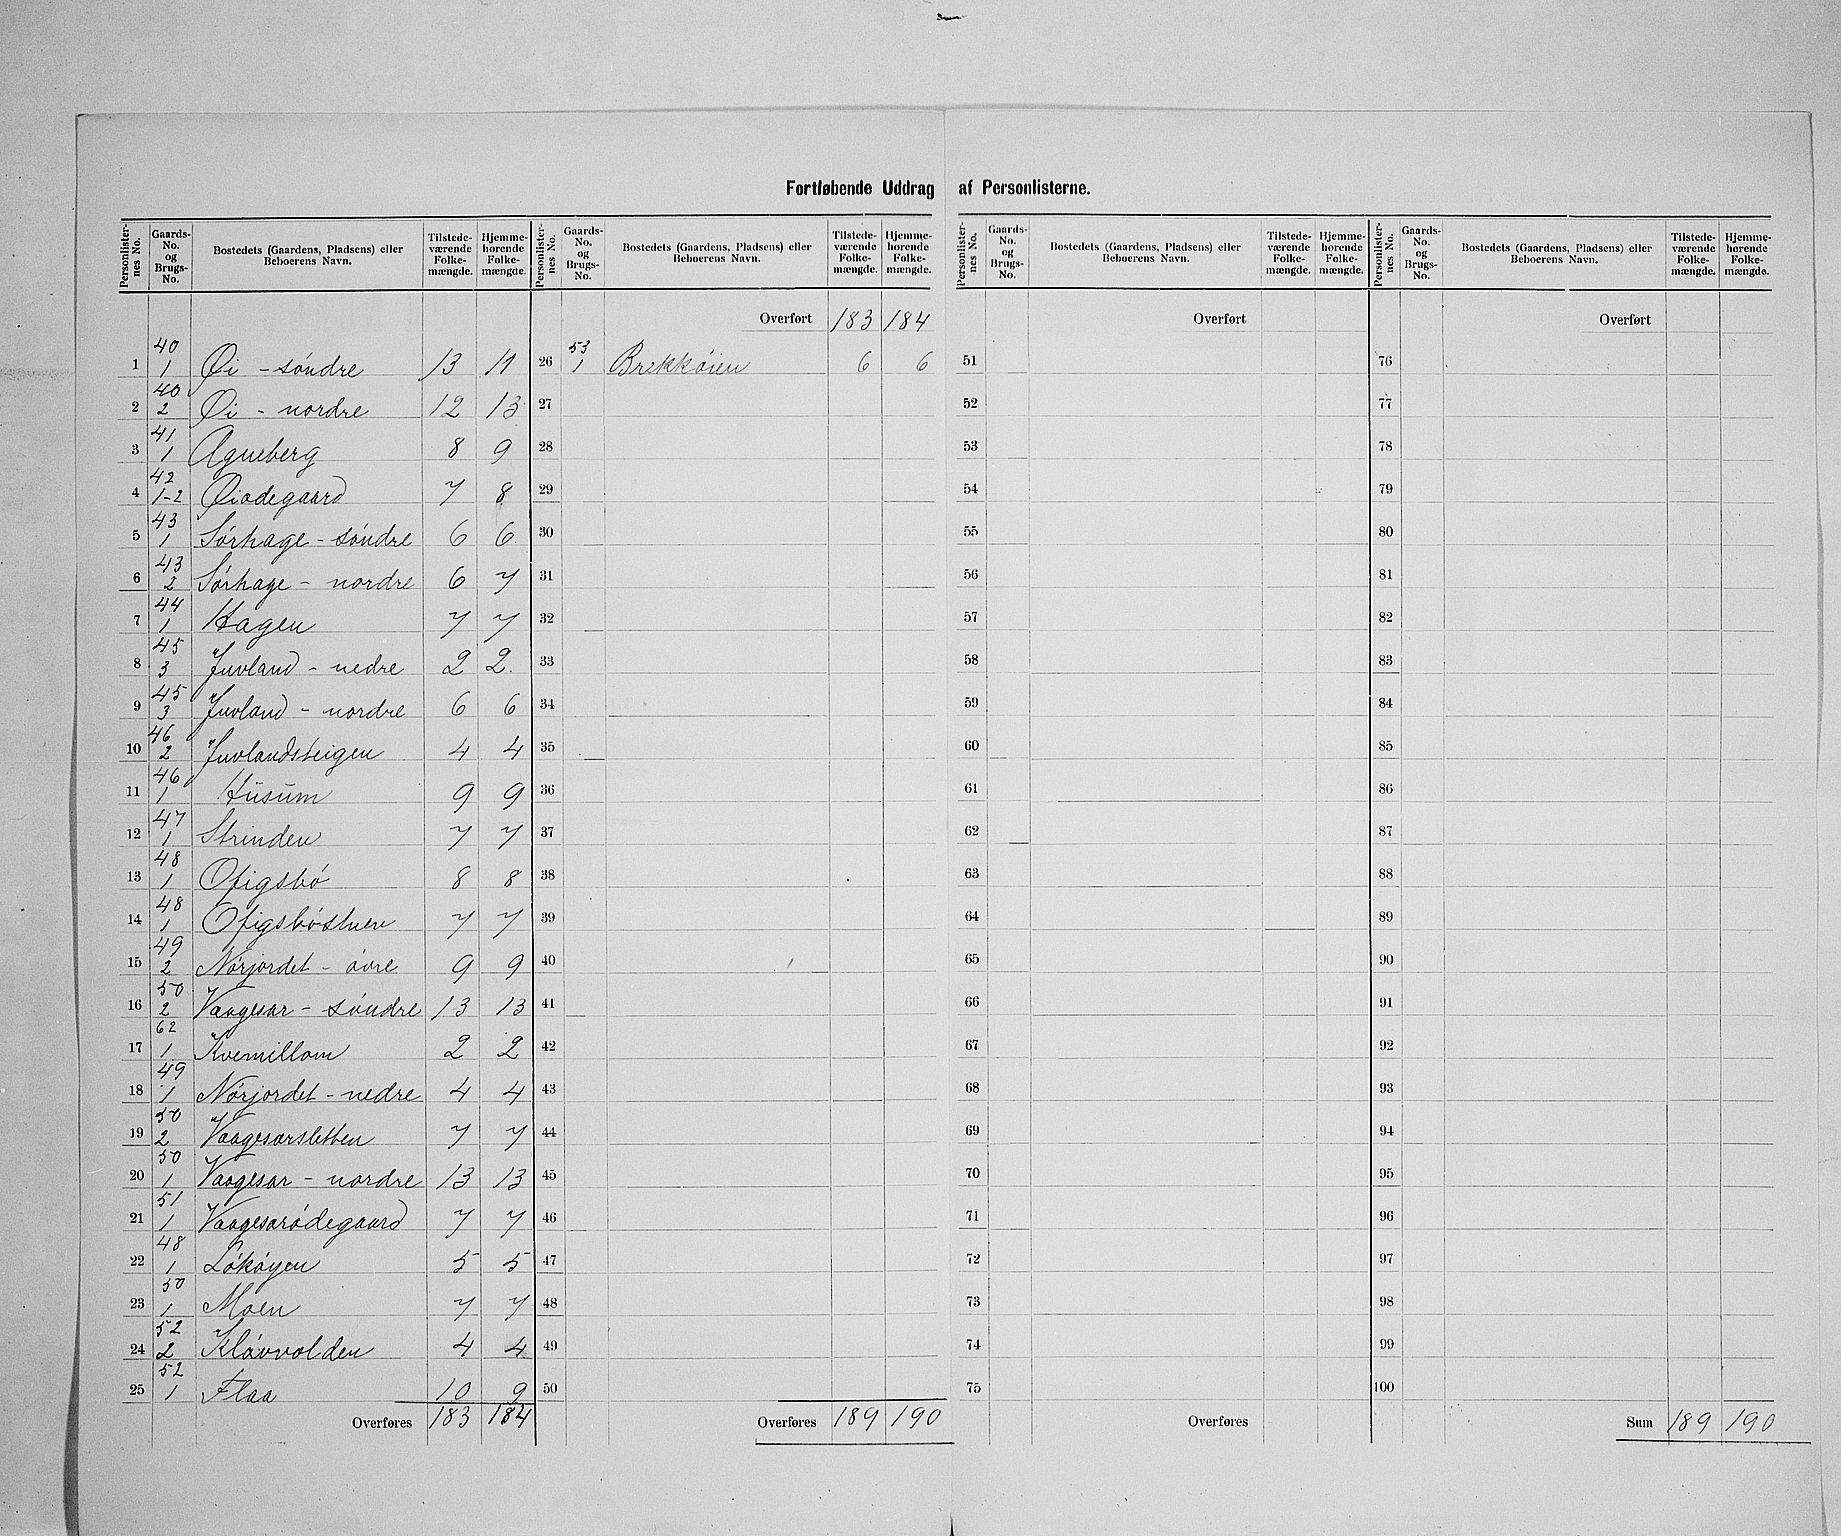 Fortløbende Uddrag af Personlisternes.
Personlisternes No. | Gaards-No. og Brugs-No. | Bostedets (Gaardens, Pladsens) eller Beboerens Navn. | Tilstedeværende Folkemængde. | Hjemmehørende Folkemængde. | Personlisternes No. | Gaards-No. og Brugs-No. | Bostedets (Gaardens, Pladsens) eller Beboerens Navn. | Tilstedeværende Folkemængde. | Hjemmehørende Folkemængde. | Personlisternes No. | Gaards-No. og Brugs-No. | Bostedets (Gaardens, Pladsens) eller Beboerens Navn. | Tilstedeværende Folkemængde. | Hjemmehørende Folkemængde. | Personlisternes No. | Gaards-No. og Brugs-No. | Bostedets (Gaardens, Pladsens) eller Beboerens Navn. | Tilstedeværende Folkemængde. | Hjemmehørende Folkemængde.
Overført 183 184 Overført Overført
1 40/1 Øi - søndre 13 11 26 53/1 Brekkøien 6 6 51 76
2 40/2 Øi - nordre 12 13 27 52 77
3 41/1 Agneberg 8 9 28 53 78
4 42/1-2 Øiodegaard 7 8 29 54 79
5 43/1 Sørhage - søndre 6 6 30 55 80
6 43/2 Sørhage - nordre 6 7 31 56 81
7 44/1 Hagen 7 7 32 57 82
8 45/3 Juvland - nedre 2 2. 33 58 83
9 45/3 Juvland - nordre 6 6 34 59 84
10 46/2 Juvlandsteigen 4 4 35 60 85
11 46/1 Husum 9 9 36 61 86
12 47/1 Strinden 7 7 37 62 87
13 48/1 Ofigsbø 8 8 38 63 88
14 48/1 Ofigsbøstuen 7 7 39 64 89
15 49/2 Nørjordet - øvre 9 9 40 65 90
16 50/2 Vaagesar - søndre 13 13 41 66 91
17 62/1 Kvemillom 2 2 42 67 92
18 49/1 Nørjordet - nedre 4 4 43 68 93
19 50/2 Vaagesarsletten 7 7 44 69 94
20 50/1 Vaagesar - nordre 13 13 45 70 95
21 51/1 Vaagesarødegaard 7 7 46 71 96
22 48/1 Løkøyen 5 5 47 72 97
23 50/1 Moen 7 7 48 73 98
24 52/2 Kløvvolden 4 4 49 74 99
25 52/1 Flaa 10 9 50 75 100
Overføres 183 184 Overføres 189 190 Overføres Sum 189 190